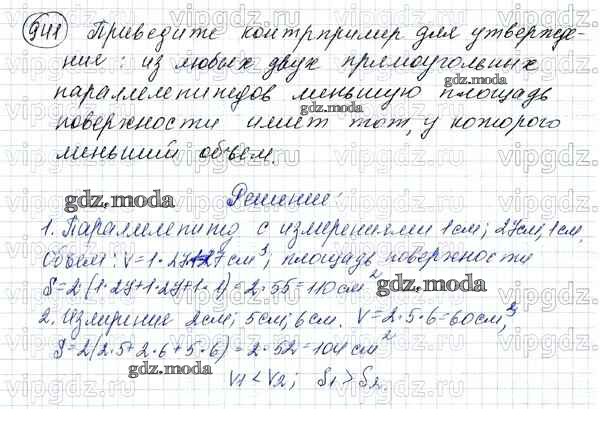 941 Приведите контрпример для утвержде-
ние: из любых двух прямоугольных
параллелепипедов меньшую площадь
поверхности имеет тот, у которого
меньший объем.
Решение:
1. Параллелепипед с измерениями 1см; 27см, 1см.
Объем: V=1·27·1=27см³; площадь поверхности
S=2·(1·27+1·27+1·1)=2·55=110см²
2. Измерение 2см; 5см; 6см. V=2·5·6=60см³,
S=2(2·5+2·6+5·6)=2·52=104см²
V1<V2; S1>S2.
gdz.moda
gdz.moda
gdz.moda
gdz.moda
gdz.moda
vipgdz.com